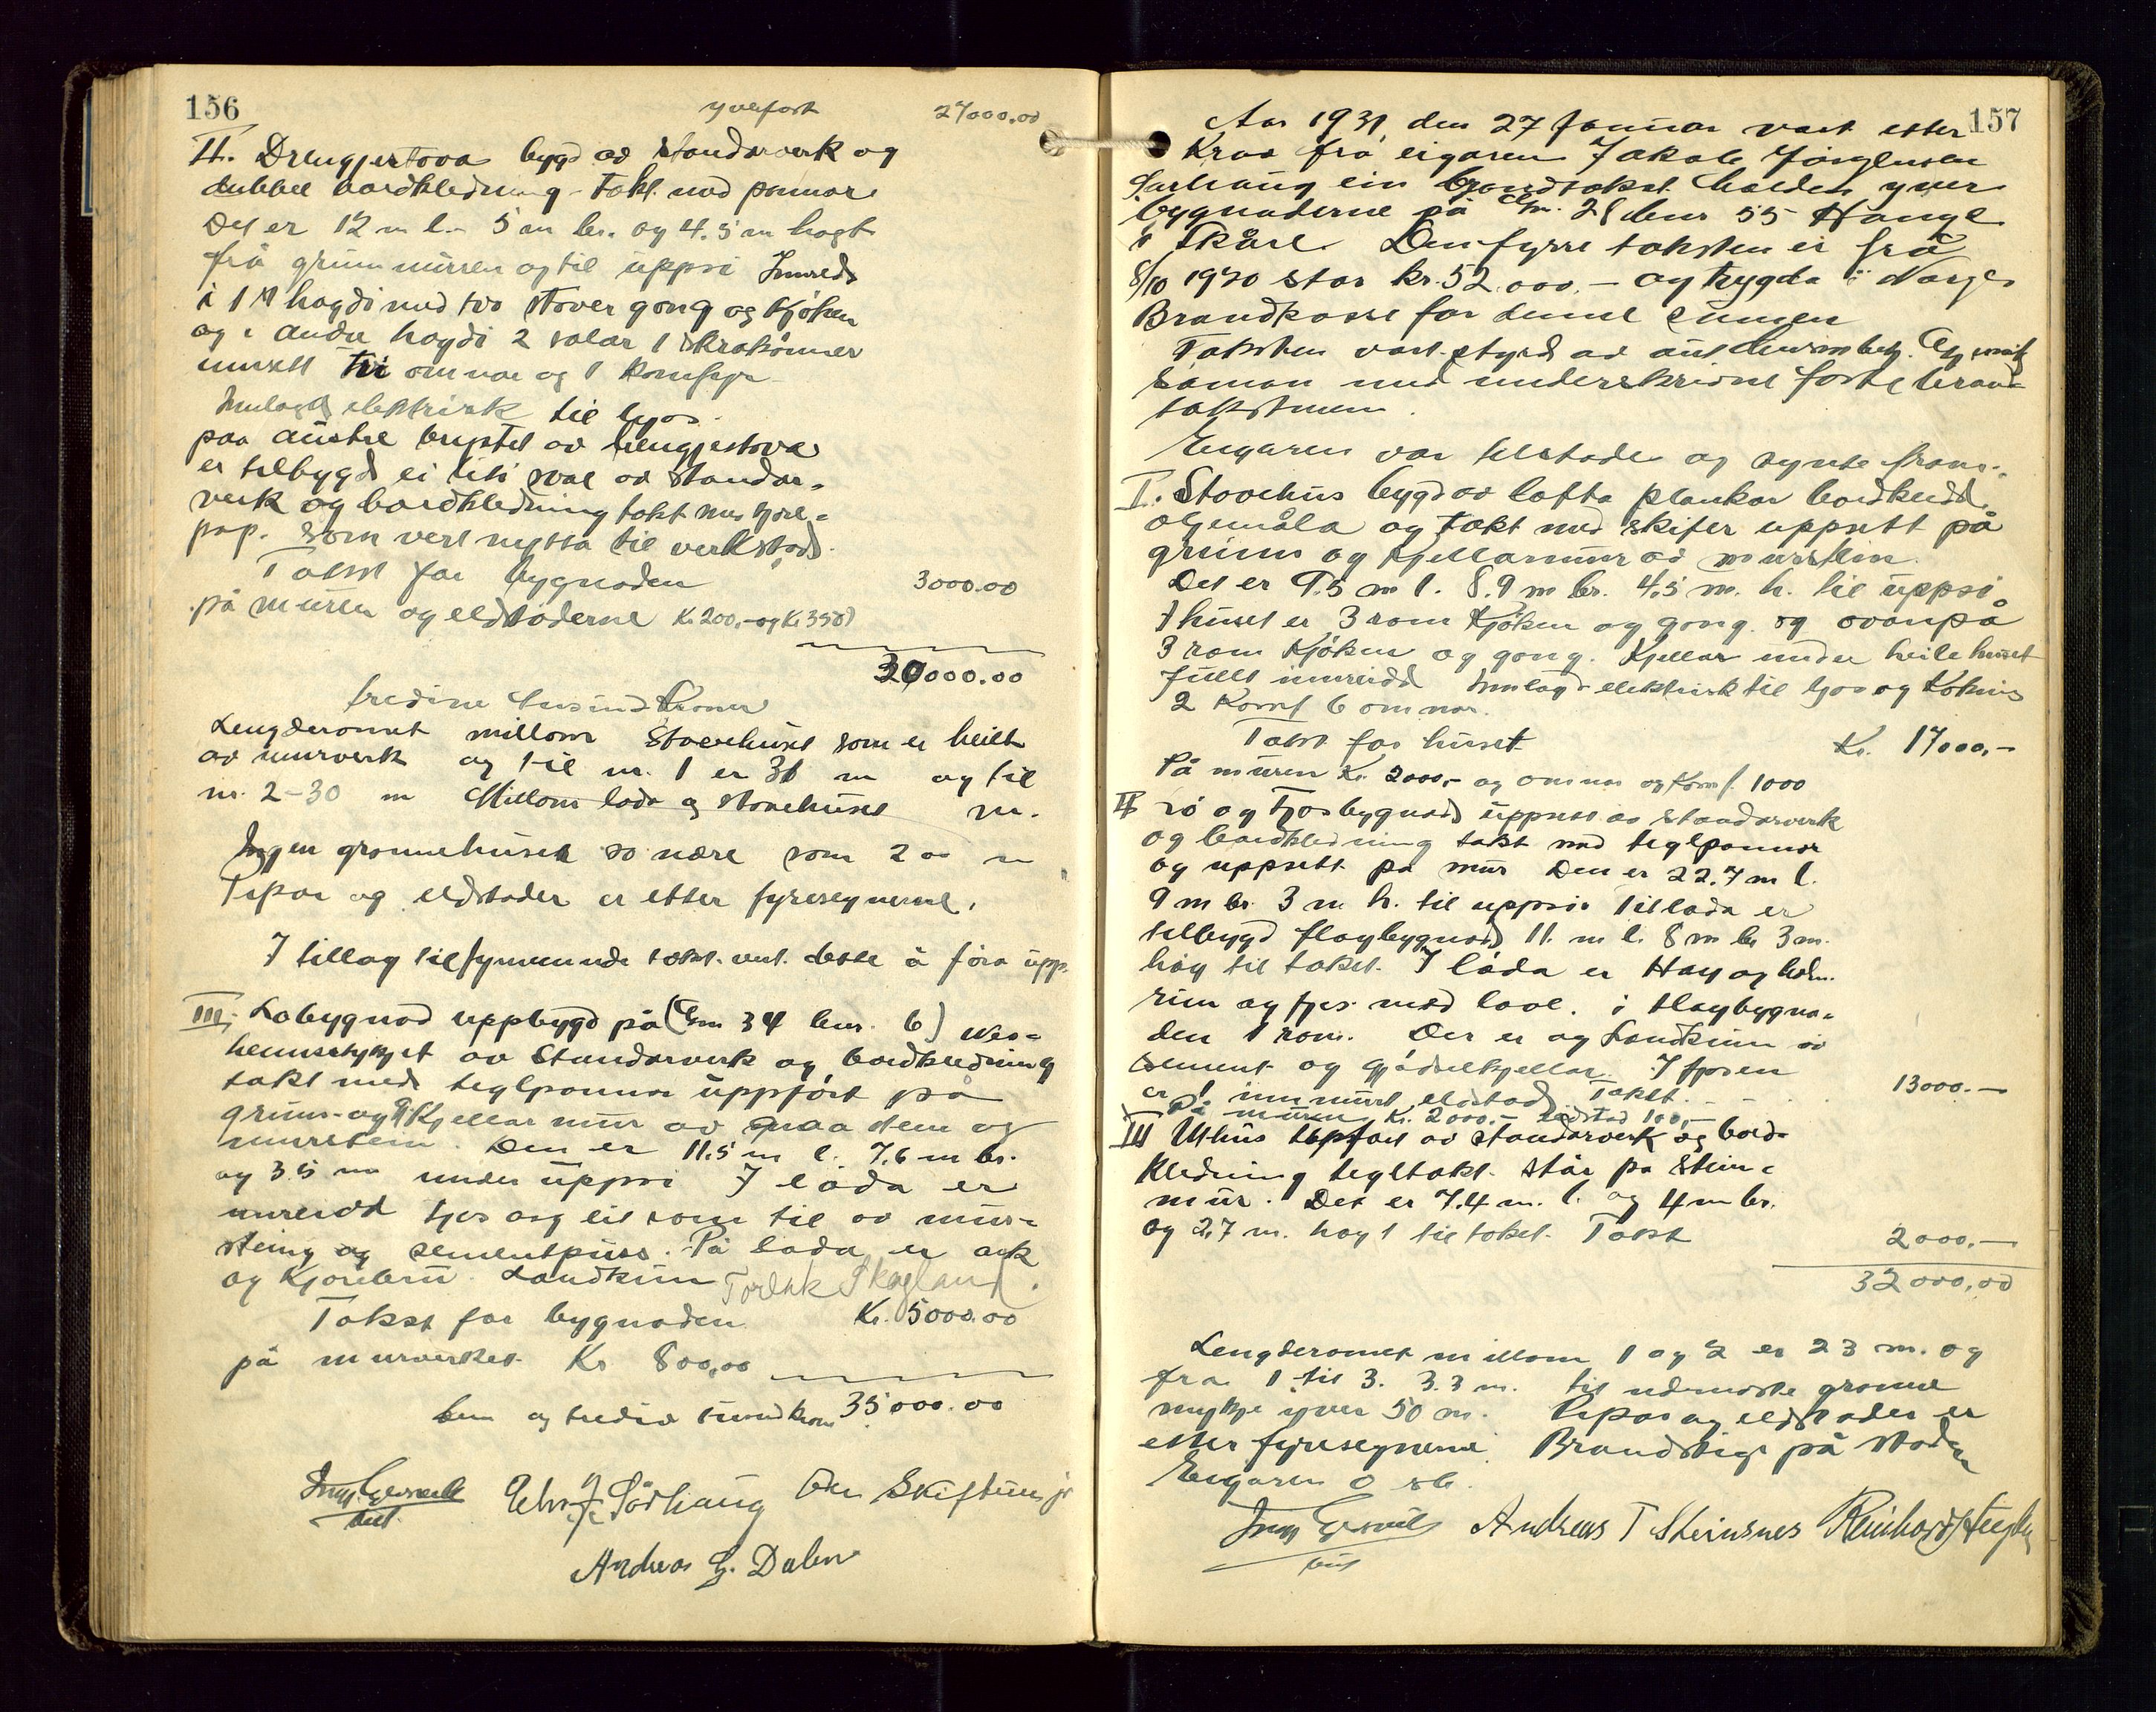 156
yvefört 27000.00
II. Drengjestova bygd av standarverk og
dubbel bordkledning. Tekt med pannor
Det er 12 m l. 5 m br. og 4.5 m høgt
frå grunnmuren og til uppsi Innreds
i 1st høgdi med tvo stover gong og kjøken
og i andre høgdi 2 salar 1 skråkommer
innsett tri omnar og 1 komfyr
Innlagd elektrisk til ljos.
paa austre bustet av drengjestova
er tilbygd ei liti sval av standar-
verk og bordkledning tekt med tjøre-
pap. som vert nytta til verkstad.
Takst for bygnaden 3000.00
på muren og eldstaderne Kr 200,- og Kr 350)
30000.00
tredive tusind kroner
Lengderomet millom Stovehuset som er heilt
av murverk og til nr. 1 er 31 m og til
nr. 2-30 m Millom lada og stovehuset m.
Ingen grannehuset so nære som 200 m
Pipor og eldstader er etter fyresegnerne.
I tillag til fyrenemnde takst vert dette å föra upp:
III. Löbygnad uppbygd på (Gnr 34 bnr. 6) Ves-
heimsstykkjet av Standarverk og bordkledning
tekt med teglpannor uppført på
grunn- og kjellarmur av graastein og
murstein. Den er 11.5 m l. 7,6 m br.
og 3.5 m under uppsi I löda er
innreidd fjos og eit rom til av mur-
stein og sementpuss. På lada er ark
og kjørebru. Landkum Torlak Skogland.
Takst for bygnaden Kr. 5000.00
på murverket Kr 800,00
fem og tredive tusind kroner 35000.00
Ing. Gjersvik
lut.
Elias J. Sörhaug Ole Skiftun jr
Andreas G. Dalen
157
Aar 1931, den 27 Januar vart etter
Krav frå eigaren Jakob Jörgensen
Sørhaug ein brandtakst halden yver
bygnaderne på Gnr. 28 bnr 55 Hauge
i Skåre. Den fyrre taksten er frå
8/10 1920 stor kr. 52.000.- og trygda i Norges
Brandkasse for denne summen
Taksten vart styrd av
saman med underskrivne faste brand-
takstmenn.
Eigaren var tilstade og synte fram:
I. Stovehus bygd av lafta plankar bordkledd,
oljemåla og tekt med skifer uppsett på
grunn og kjellarmur av murstein.
Det er 9.5 m l. 8.9 m br. 4.5 m. h. til uppsi.
I huset er 3 rom kjøken og gong. og ovanpå
3 rom kjøken og gong. Kjellar under heile huset
fullt innreidd Innlagd elektrisk til ljos og kokning
2 komf 6 omnar.
Takst for huset Kr. 17000,-
På muren Kr. 2000,- og omnar og komf. 1000
II Lö og fjosbygnad uppsett av standarverk
og bordkledning tekt med teglpannor
og uppsett på mur Den er 22.7 m l.
9 m br. 3 m h. til uppsi. Til lada er
tilbygd fløybygnad 11. m l. 8 m br 3 m.
høg til taket. I låda er Høy og halm.
rum og fjos med lave. i fløybygna-
den 1 rom. Der er og Landkum av
sement og gjødselkjellar. I fjosen
er 1 innmurt eldstad. Takst. 13000.-
På muren Kr. 2000.- eldstad 100,-
III Uthus uppfört av standarverk og bord-
kledning tegltekt. står på stein-
mur. Det er 7.4 m. l. og 4 m br.
og 2.7 m. høgt til taket. Takst 2000.-
32000,00
Lengderomet millom 1 og 2 er 23 m. og
fra 1 til 3. 3.3 m. til næmaste granne
mykje yver 50 m. Pipor og eldstader er
etter fyresegnerne. Brandstige på staden
Eigaren
Ing. Gjersvik Andreas T Steinsnes Reinhard
lut